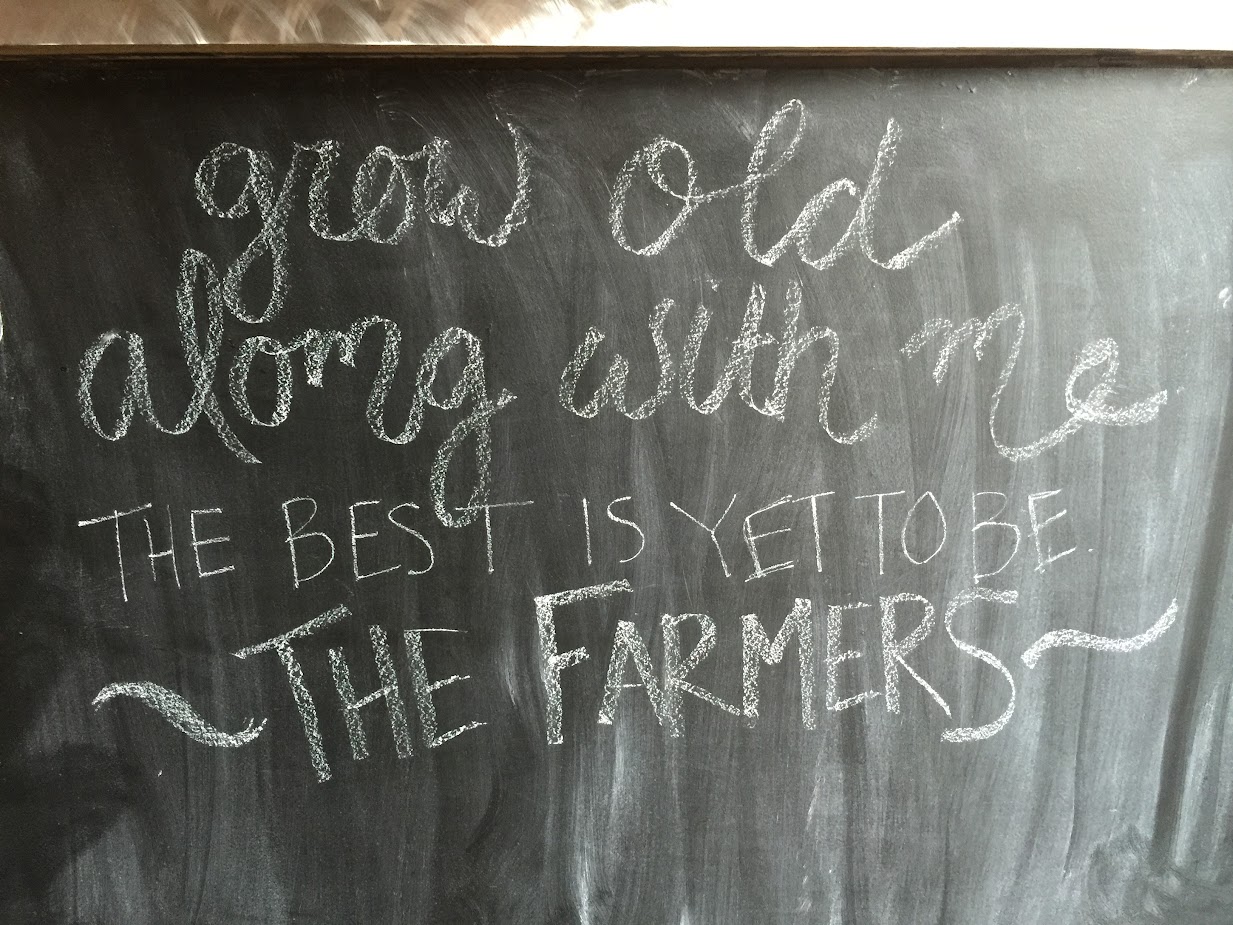 grow old
along with me
THE BEST IS YET TO BE.
~ THE FARMERS ~